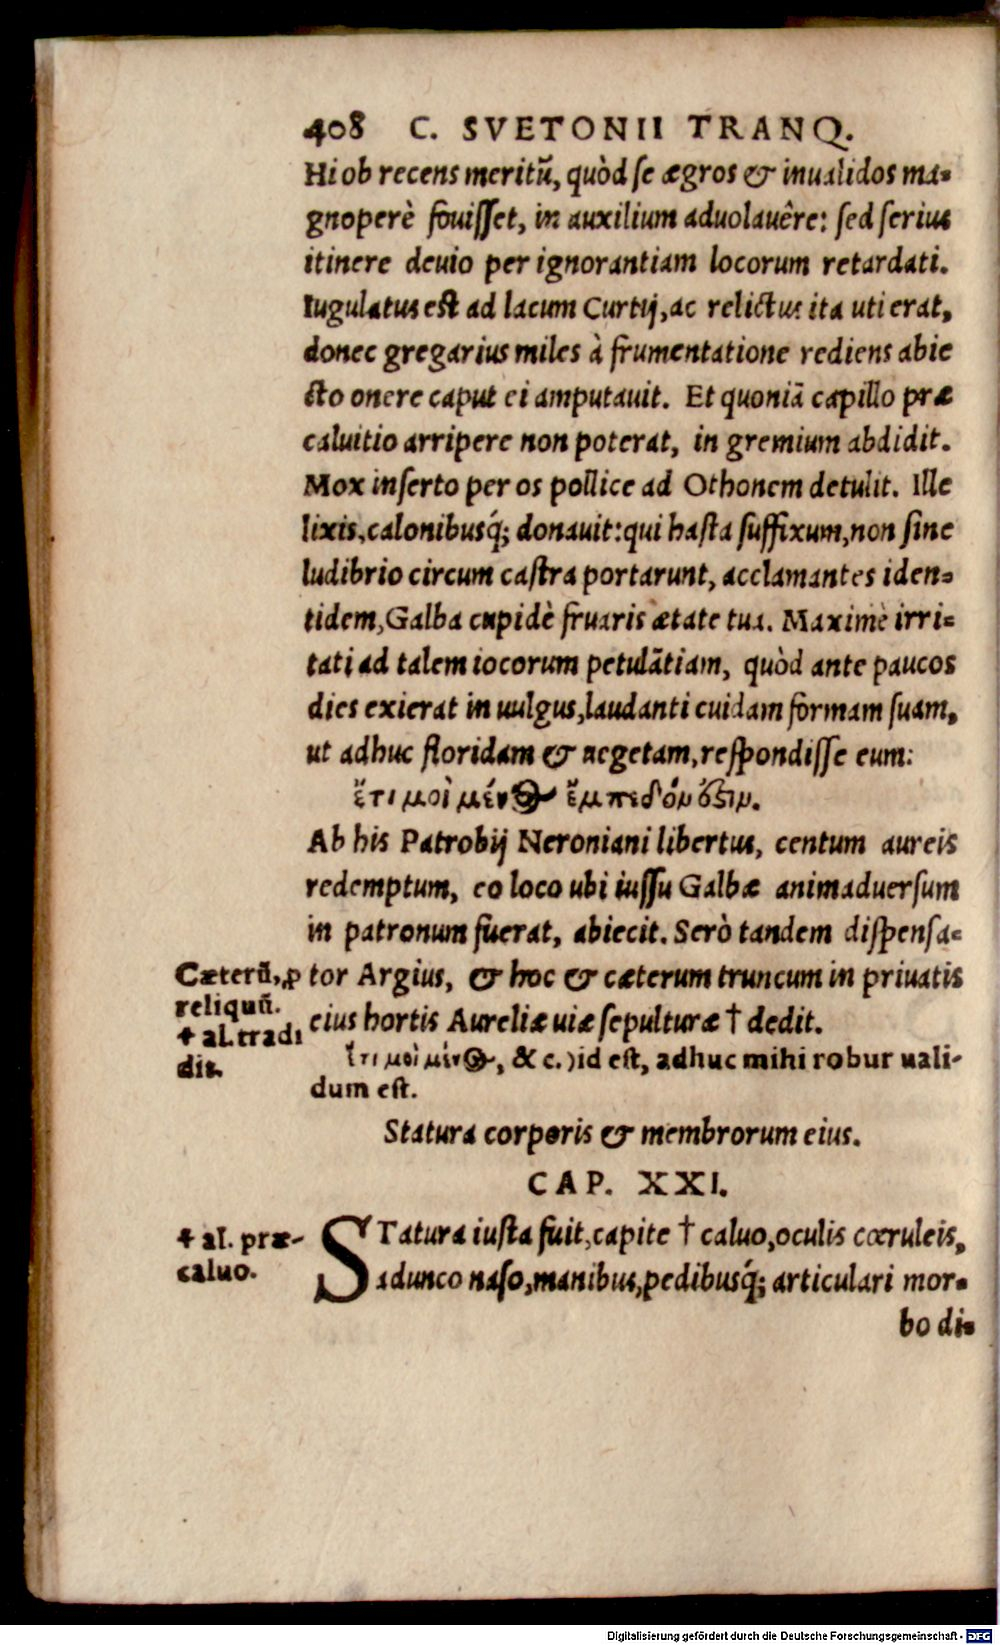 408 C. SVETONII TRANQ.
Hi ob recens meritũ, quòd se ægros & inualidos ma-
gnoperè fouisset, in auxilium aduolauêre: sed serius
itinere deuio per ignorantiam locorum retardati.
Iugulatus est ad lacum Curtij, ac relictus ita uti erat,
donec gregarius miles à frumentatione rediens abie
cto onere caput ei amputauit. Et quoniã capillo præ
caluitio arripere non poterat, in gremium abdidit.
Mox inserto per os pollice ad Othonem detulit. Ille
lixis, calonibusq́; donauit: qui hasta suffixum, non sine
ludibrio circum castra portarunt, acclamantes iden-
tidem, Galba cupidè fruaris ætate tua. Maximè irri-
tati ad talem iocorum petulãtiam, quòd ante paucos
dies exierat in uulgus, laudanti cuidam formam suam,
ut adhuc floridam & uegetam, respondisse eum:
ἔτι μοὶ μένος ἔμπεδόν ἐστιν.
Ab his Patrobij Neroniani libertus, centum aureis
redemptum, eo loco ubi iussu Galbæ animaduersum
in patronum fuerat, abiecit. Serò tandem dispensa-
tor Argius, & hoc & cæterum truncum in priuatis
eius hortis Aureliæ uiæ sepulturæ † dedit.
Cæterũ, ꝓ
reliquũ.
✝ al. tradi
dit.
ἔτι μοὶ μένος, & c.) id est, adhuc mihi robur uali-
dum est.
Statura corporis & membrorum eius.
CAP. XXI.
STatura iusta fuit, capite † caluo, oculis cœruleis,
adunco naso, manibus, pedibusq́; articulari mor-
✝ al. præ-
caluo.
bo di-
Digitalisierung gefördert durch die Deutsche Forschungsgemeinschaft - DFG